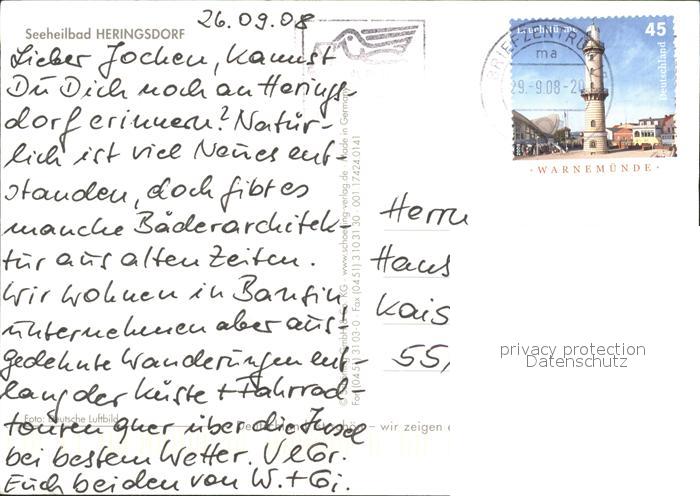 26.09.08
Seeheilbad HERINGSDORF
Lieber Jochen, kannst
Du Dich noch an Herings-
dorf erinnern? Natür-
lich ist viel Neues ent-
standen, doch gibt es
manche Bäderarchitek-
tur aus alten Zeiten.
Wir wohnen in Bansin
unternehmen aber aus-
gedehnte Wanderungen ent-
lang der Küste + Fahrrad-
touren quer über die Insel
bei bestem Wetter. VlGr.
Euch beiden von W.+Gi.
Foto: Deutsche Luftbild
– wir zeigen
KG · www.schoening-verlag.de · Made in Germany
Fax (0451) 310 31 30 · 001 17424 0141
BRIEFZENTRUM
ma
29.-9.08-20
45
Deutschland
· WARNEMÜNDE ·
Herrn
Hans
Kais
55,
privacy protection
Datenschutz